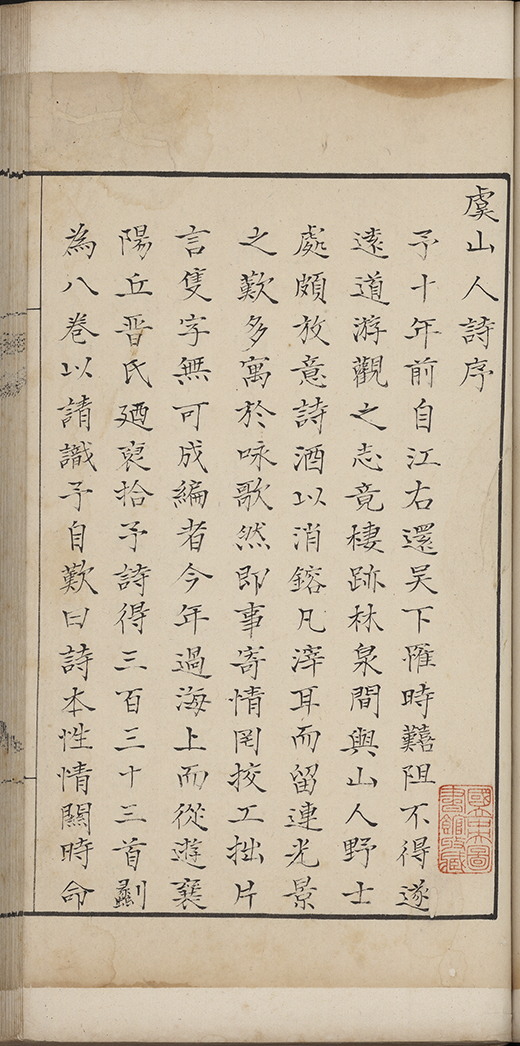 虞山人詩序
予十年前自江右還吳下罹時囏阻不得遂
遠道游觀之志竟棲跡林泉間與山人野士
處頗放意詩酒以消鎔凡滓耳而留連光景
之歎多寓於咏歌然即事寄情罔挍工拙片
言隻字無可成編者今年過海上而從遊襄
陽丘晋氏廼裒拾予詩得三百三十三首劙
為八卷以請識予自歎曰詩本性情關時命
國立中央圖
書館收藏